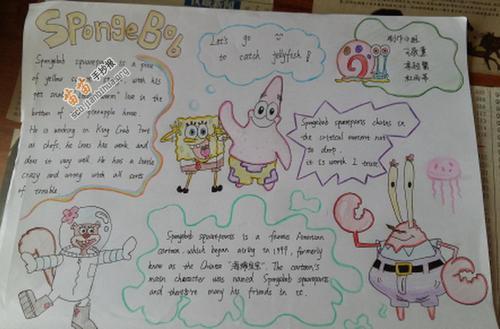 SPongeBob
Spongebob squarepants is a piece
of yellow with his
pet snail live in the
bottom of pineapple house.
He is working in King Crab Port
as chefs, he loves his work, and
does it very well. He has a
crazy and wrong with all sorts
of trouble.
苗苗手抄报
Let's go
to catch jellyfish!
制作小组
Spongebob squarepants chains in
the critical moment not
to drop,
it is worth I trust.
Spongebob squarepants is a famous American
cartoon, which began airing in 1999, formerly
know as the Chinese "海绵宝宝". The cartoon's
main character was named Spongebob squarepants
and there're many his friends in it.